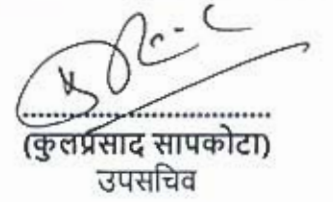 (कुलप्रसाद सापकोटा)
उपसचिव